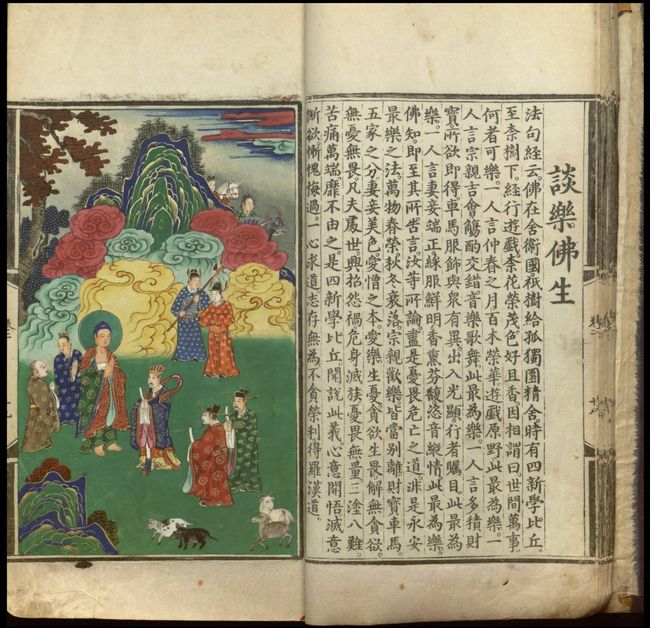 談樂佛生
法句經云。佛在舍衛國祇樹給孤獨園精舍時有四新學比丘。
至柰樹下。經行遊戲。柰花榮茂色好且香因相謂曰世間萬事。
何者可樂。一人言仲春之月百木榮華遊戲原野此最為樂。一
人言宗親吉會觴酌交錯音樂歌舞此最為樂。一人言多積財
寶所欲即得車馬服飾與眾有異出入光顯行者矚目此最為
樂。一人言妻妾端正綵服鮮明香熏芬馥恣音縱情此最為樂。
佛知。即至其所告言汝等所論盡是憂畏危亡之道非是永安
最樂之法萬物春榮秋冬衰落宗親歡樂皆當別離財寶車馬。
五家之分妻妾美色愛憎之本。愛樂生憂貪欲生畏解無貪欲。
無憂無畏凡夫處世興招怨禍危身滅族憂畏無量三塗八難
苦痛萬端靡不由之。是四新學比丘聞說此義心意開悟滅意
斷欲慚愧悔過。一心求道志存無為不貪榮利得羅漢道。